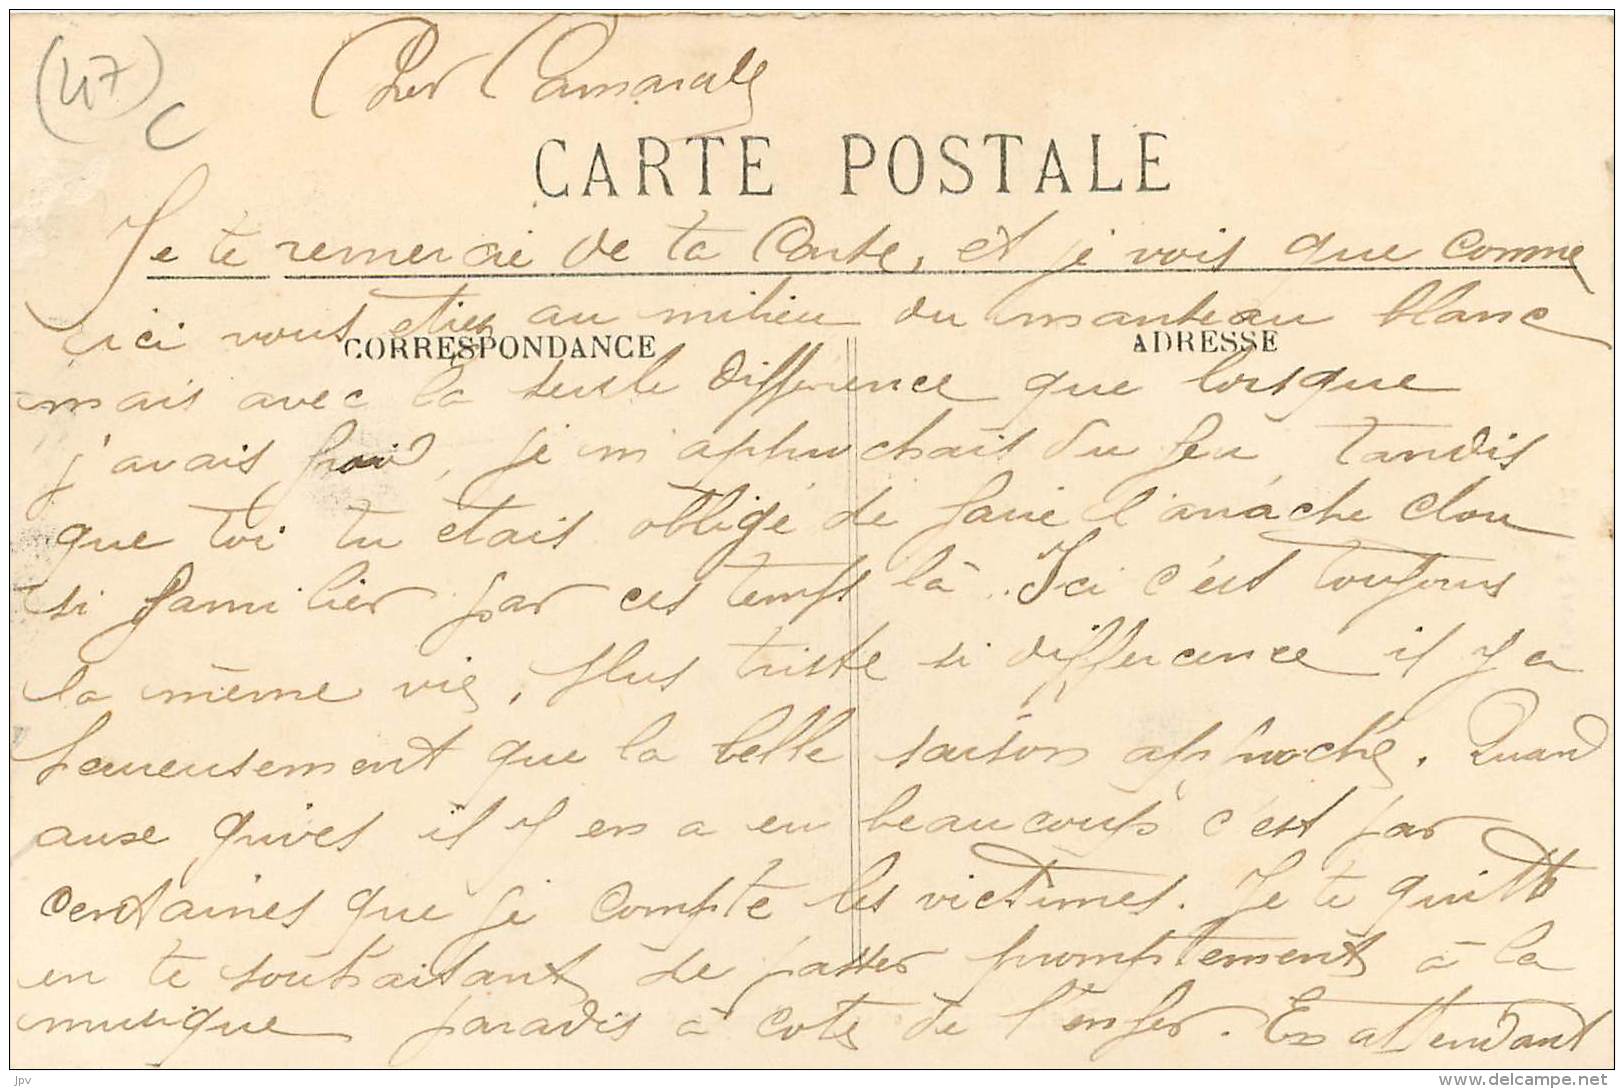 (47)
C
Cher Camarade
CARTE POSTALE
Je te remercie de ta Carte, et je vois que comme
ici vous étiez au milieu du manteau blanc
CORRESPONDANCE
ADRESSE
mais avec la seule différence que lorsque
j'avais froid, je m'approchais du feu, tandis
que toi tu étais obligé de faire l'arrache clou
si familier par ces temps là. Ici c'est toujours
la même vie, plus triste si différence il y a
heureusement que la belle saison approche. Quand
aux grives il y en a eu beaucoup c'est par
centaines que je compte les victimes. Je te quitte
en te souhaitant de passer promptement à la
musique paradis à coté de l'enfer. En attendant
jpv
www.delcampe.net